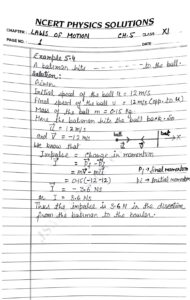 NCERT PHYSICS SOLUTIONS
CHAPTER: LAWS OF MOTION CH: 5 CLASS XI
PAGE NO. 1 DATE
Example 5.4
A batsman hits to the ball.
Solution:
Given
Initial speed of the ball u = 12 m/s
Final speed of the ball v = 12 m/s (opp. to u)
Mass of the ball m = 0.15 kg
Here the batsman hits the ball back. So
u = 12 m/s
and v = -12 m/s
ball bat
We know that
Impulse = Change in momentum
I = Pf - Pi
Pf → final momentum
= mv - mu
Pi → initial momentum
= 0.15(-12-12)
I = -3.6 NS
or I = 3.6 NS
Thus the impulse is 3.6 N in the direction
from the batsman to the bowler.